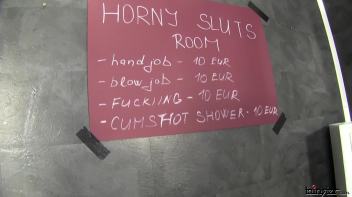 HORNY SLUTS
ROOM
- hand job - 10 EUR
- blow job - 10 EUR
- FUCKIING - 10 EUR
- CUMSHOT SHOWER - 10 EUR